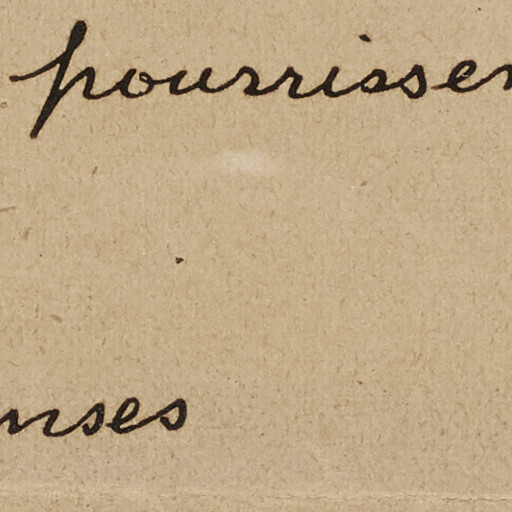 pourrissen
nses